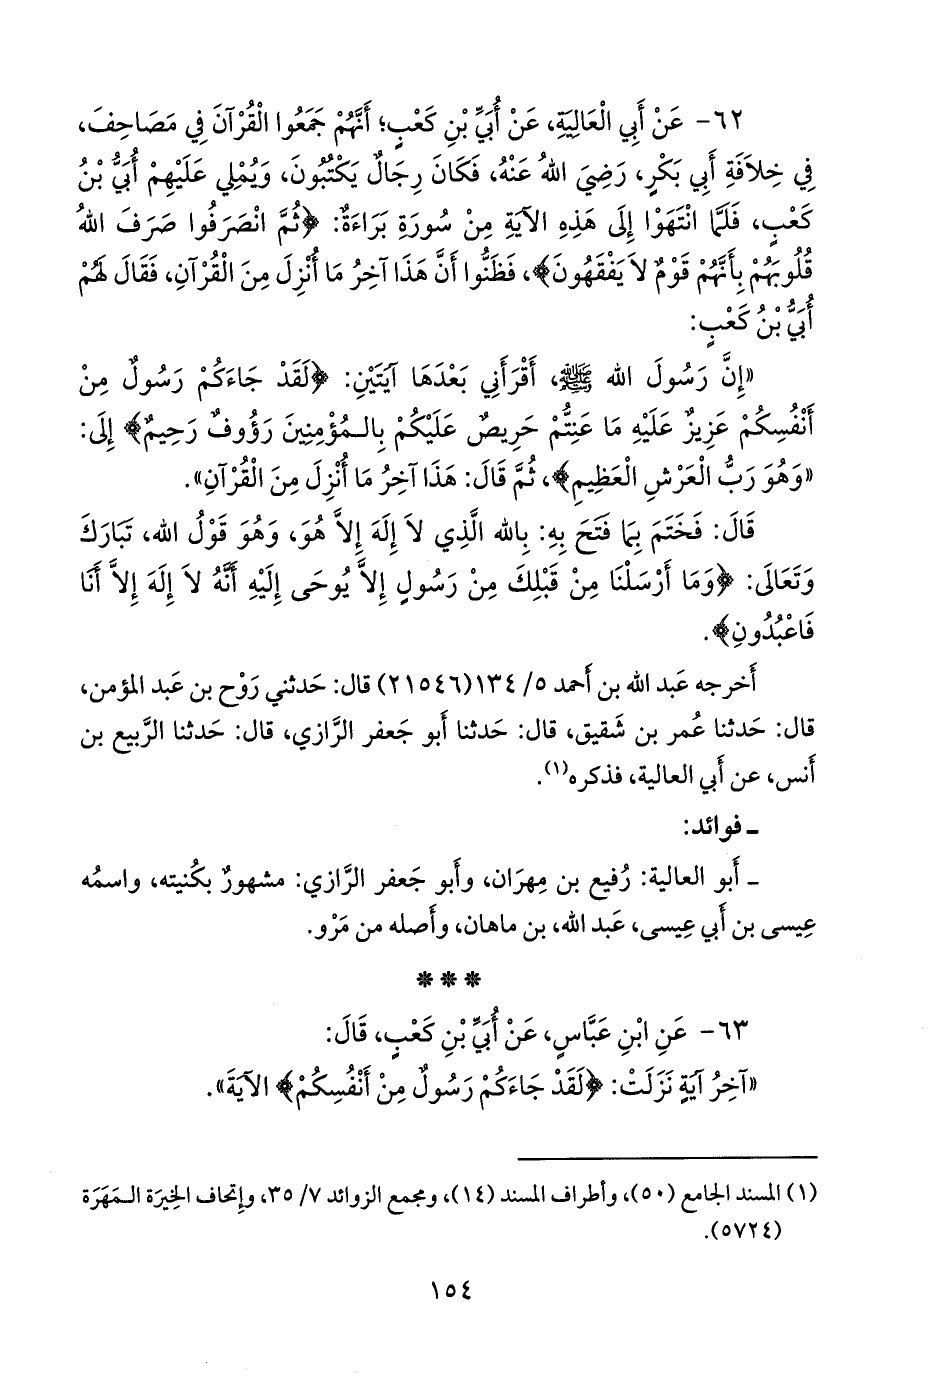 ٦٢- عَنْ أَبِي الْعَالِيَةِ، عَنْ أُبَيِّ بْنِ كَعْبٍ؛ أَنَّهُمْ جَمَعُوا الْقُرْآنَ فِي مَصَاحِفَ،
فِي خِلاَفَةِ أَبِي بَكْرٍ، رَضِيَ اللهُ عَنْهُ، فَكَانَ رِجَالٌ يَكْتُبُونَ، وَيُمْلِي عَلَيْهِمْ أُبَيُّ بْنُ
كَعْبٍ، فَلَمَّا انْتَهَوْا إِلَى هَذِهِ الآيَةِ مِنْ سُورَةِ بَرَاءَةٌ: ﴿ثُمَّ انْصَرَفُوا صَرَفَ اللهُ
قُلُوبَهُمْ بِأَنَّهُمْ قَوْمٌ لاَ يَفْقَهُونَ﴾، فَظَنُّوا أَنَّ هَذَا آخِرُ مَا أُنْزِلَ مِنَ الْقُرْآنِ، فَقَالَ لَهُمْ
أُبَيُّ بْنُ كَعْبٍ:
«إِنَّ رَسُولَ اللهِ ﷺ، أَقْرَأَنِي بَعْدَهَا آيَتَيْنِ: ﴿لَقَدْ جَاءَكُمْ رَسُولٌ مِنْ
أَنْفُسِكُمْ عَزِيزٌ عَلَيْهِ مَا عَنِتُّمْ حَرِيصٌ عَلَيْكُمْ بِالْمُؤْمِنِينَ رَؤُوفٌ رَحِيمٌ﴾ إِلَى:
«وَهُوَ رَبُّ الْعَرْشِ الْعَظِيمِ﴾، ثُمَّ قَالَ: هَذَا آخِرُ مَا أُنْزِلَ مِنَ الْقُرْآنِ».
قَالَ: فَخَتَمَ بِمَا فَتَحَ بِهِ: بِاللهِ الَّذِي لاَ إِلَهَ إِلاَّ هُوَ، وَهُوَ قَوْلُ اللهِ، تَبَارَكَ
وَتَعَالَى: ﴿وَمَا أَرْسَلْنَا مِنْ قَبْلِكَ مِنْ رَسُولٍ إِلاَّ يُوحَى إِلَيْهِ أَنَّهُ لاَ إِلَهَ إِلاَّ أَنَا
فَاعْبُدُونِ﴾.
أَخرجه عَبد الله بن أَحمد ٥/ ١٣٤(٢١٥٤٦) قال: حَدثني رَوْح بن عَبد المؤمن،
قال: حَدثنا عُمر بن شَقيق، قال: حَدثنا أَبو جَعفر الرَّازي، قال: حَدثنا الرَّبيع بن
أَنس، عن أَبي العالية، فذكره(١).
ـ فوائد:
ـ أَبو العالية: رُفيع بن مِهرَان، وأَبو جَعفر الرَّازي: مشهورٌ بكُنيته، واسمُه
عِيسى بن أَبي عِيسى، عَبد الله، بن ماهان، وأَصله من مَرْو.
***
٦٣- عَنِ ابْنِ عَبَّاسٍ، عَنْ أُبَيِّ بْنِ كَعْبٍ، قَالَ:
«آخِرُ آيَةٍ نَزَلَتْ: ﴿لَقَدْ جَاءَكُمْ رَسُولٌ مِنْ أَنْفُسِكُمْ﴾ الآيَةَ».
(١) المسند الجامع (٥٠)، وأطراف المسند (١٤)، ومجمع الزوائد ٧/ ٣٥، وإتحاف الخِيرَة المَهَرَة
(٥٧٢٤).
١٥٤